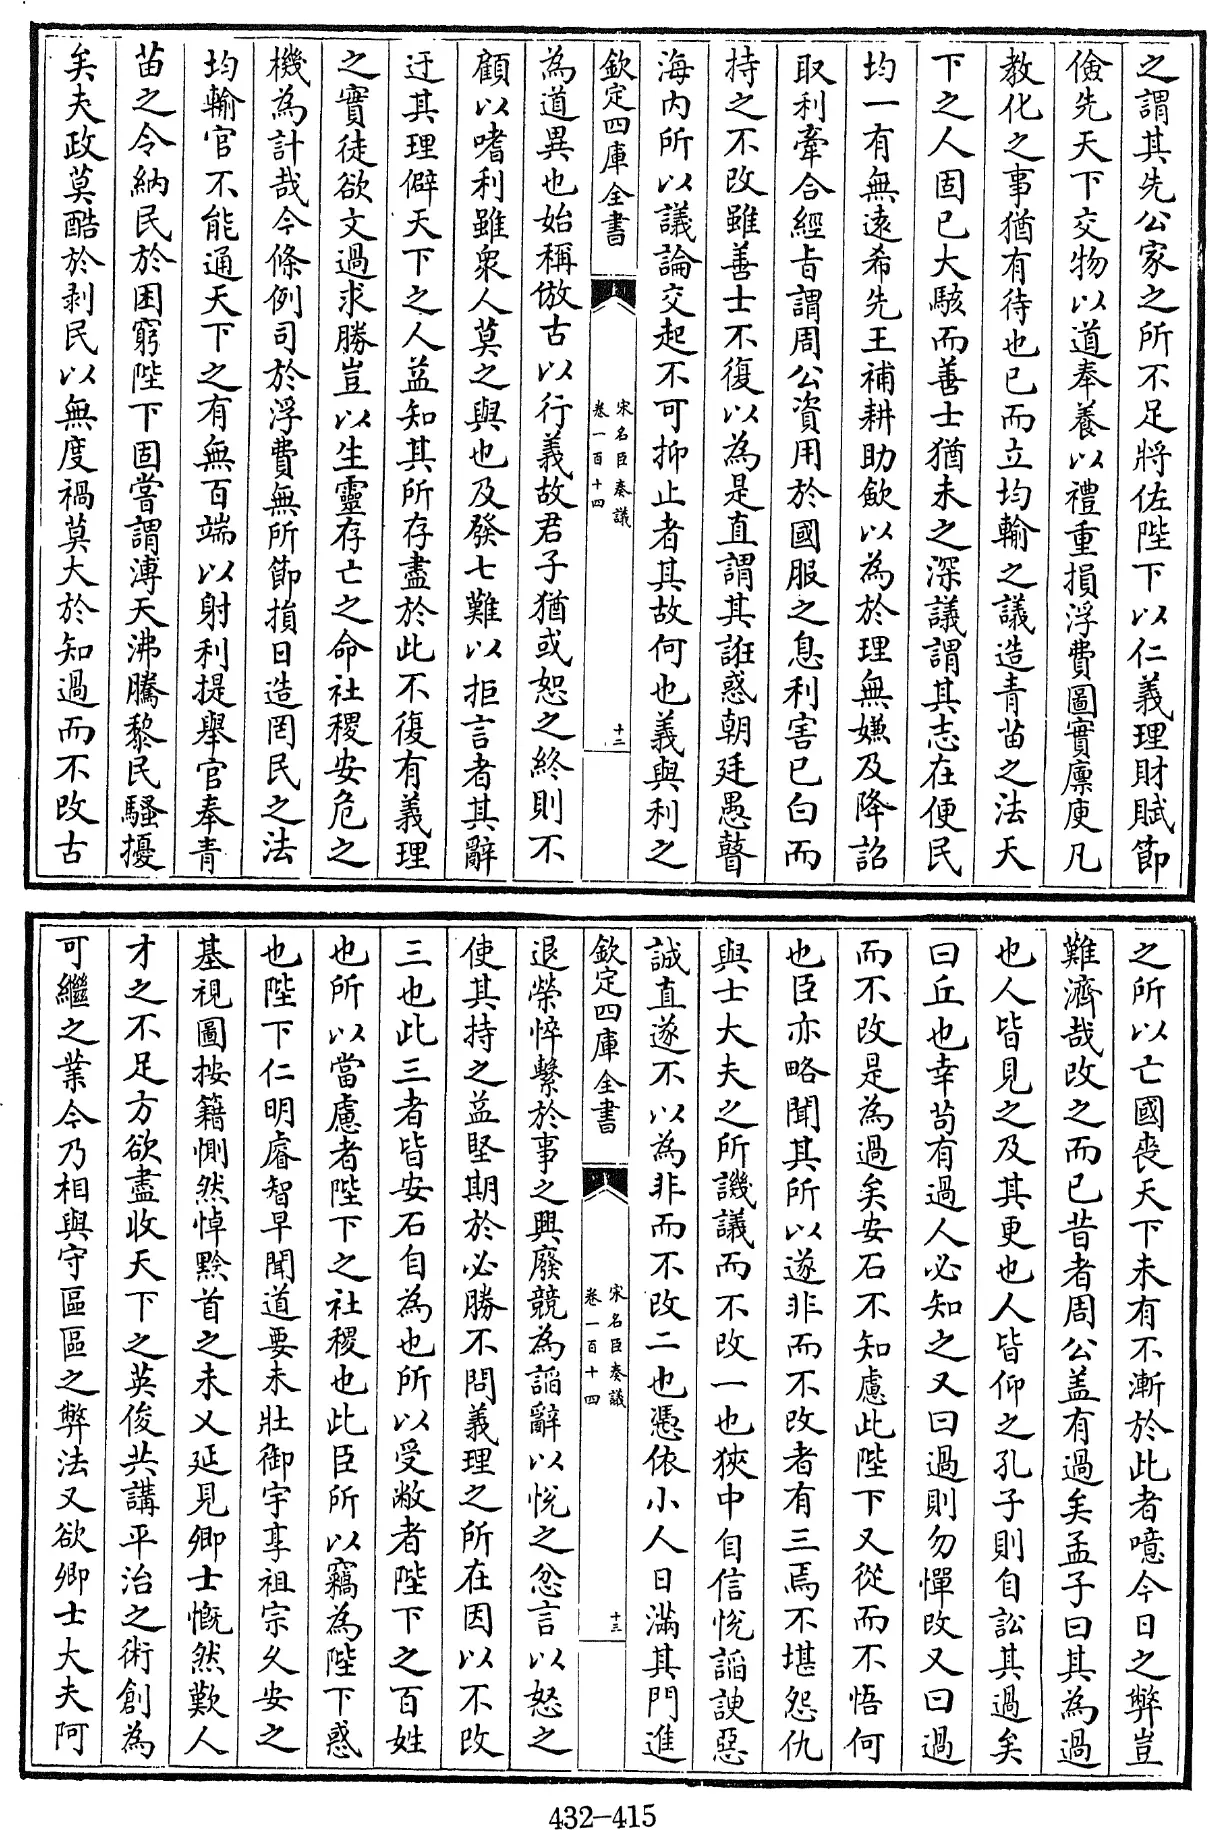 之謂其先公家之所不足將佐陛下以仁義理財賦節
儉先天下交物以道奉養以禮重損浮費圖實廩庾凡
教化之事猶有待也已而立均輸之議造青苗之法天
下之人固已大駭而善士猶未之深議謂其志在便民
均一有無遠希先王補耕助斂以為於理無嫌及降詔
取利牽合經旨謂周公資用於國服之息利害已白而
持之不改雖善士不復以為是直謂其誑惑朝廷愚瞽
海內所以議論交起不可抑止者其故何也義與利之
欽定四庫全書
宋名臣奏議
卷一百十四
十二
為道異也始稱倣古以行義故君子猶或恕之終則不
顧以嗜利雖衆人莫之與也及發七難以拒言者其辭
迂其理僻天下之人益知其所存盡於此不復有義理
之實徒欲文過求勝豈以生靈存亡之命社稷安危之
機為計哉今條例司於浮費無所節損日造罔民之法
均輸官不能通天下之有無百端以射利提舉官奉青
苗之令納民於困窮陛下固嘗謂溥天沸騰黎民騷擾
矣夫政莫酷於剥民以無度禍莫大於知過而不改古
之所以亡國喪天下未有不漸於此者噫今日之弊豈
難濟哉改之而已昔者周公盖有過矣孟子曰其為過
也人皆見之及其更也人皆仰之孔子則自訟其過矣
曰丘也幸苟有過人必知之又曰過則勿憚改又曰過
而不改是為過矣安石不知慮此陛下又從而不悟何
也臣亦略聞其所以遂非而不改者有三焉不堪怨仇
與士大夫之所譏議而不改一也狹中自信悅諂諛惡
誠直遂不以為非而不改二也憑依小人日滿其門進
欽定四庫全書
宋名臣奏議
卷一百十四
十三
退榮悴繫於事之興廢競為諂辭以悅之忿言以怒之
使其持之益堅期於必勝不問義理之所在因以不改
三也此三者皆安石自為也所以受敝者陛下之百姓
也所以當慮者陛下之社稷也此臣所以竊為陛下惑
也陛下仁明睿智早聞道要未壯御宇享祖宗久安之
基視圖按籍惻然悼黔首之未乂延見卿士慨然歎人
才之不足方欲盡收天下之英俊共講平治之術創為
可繼之業今乃相與守區區之弊法又欲卿士大夫阿
432-415